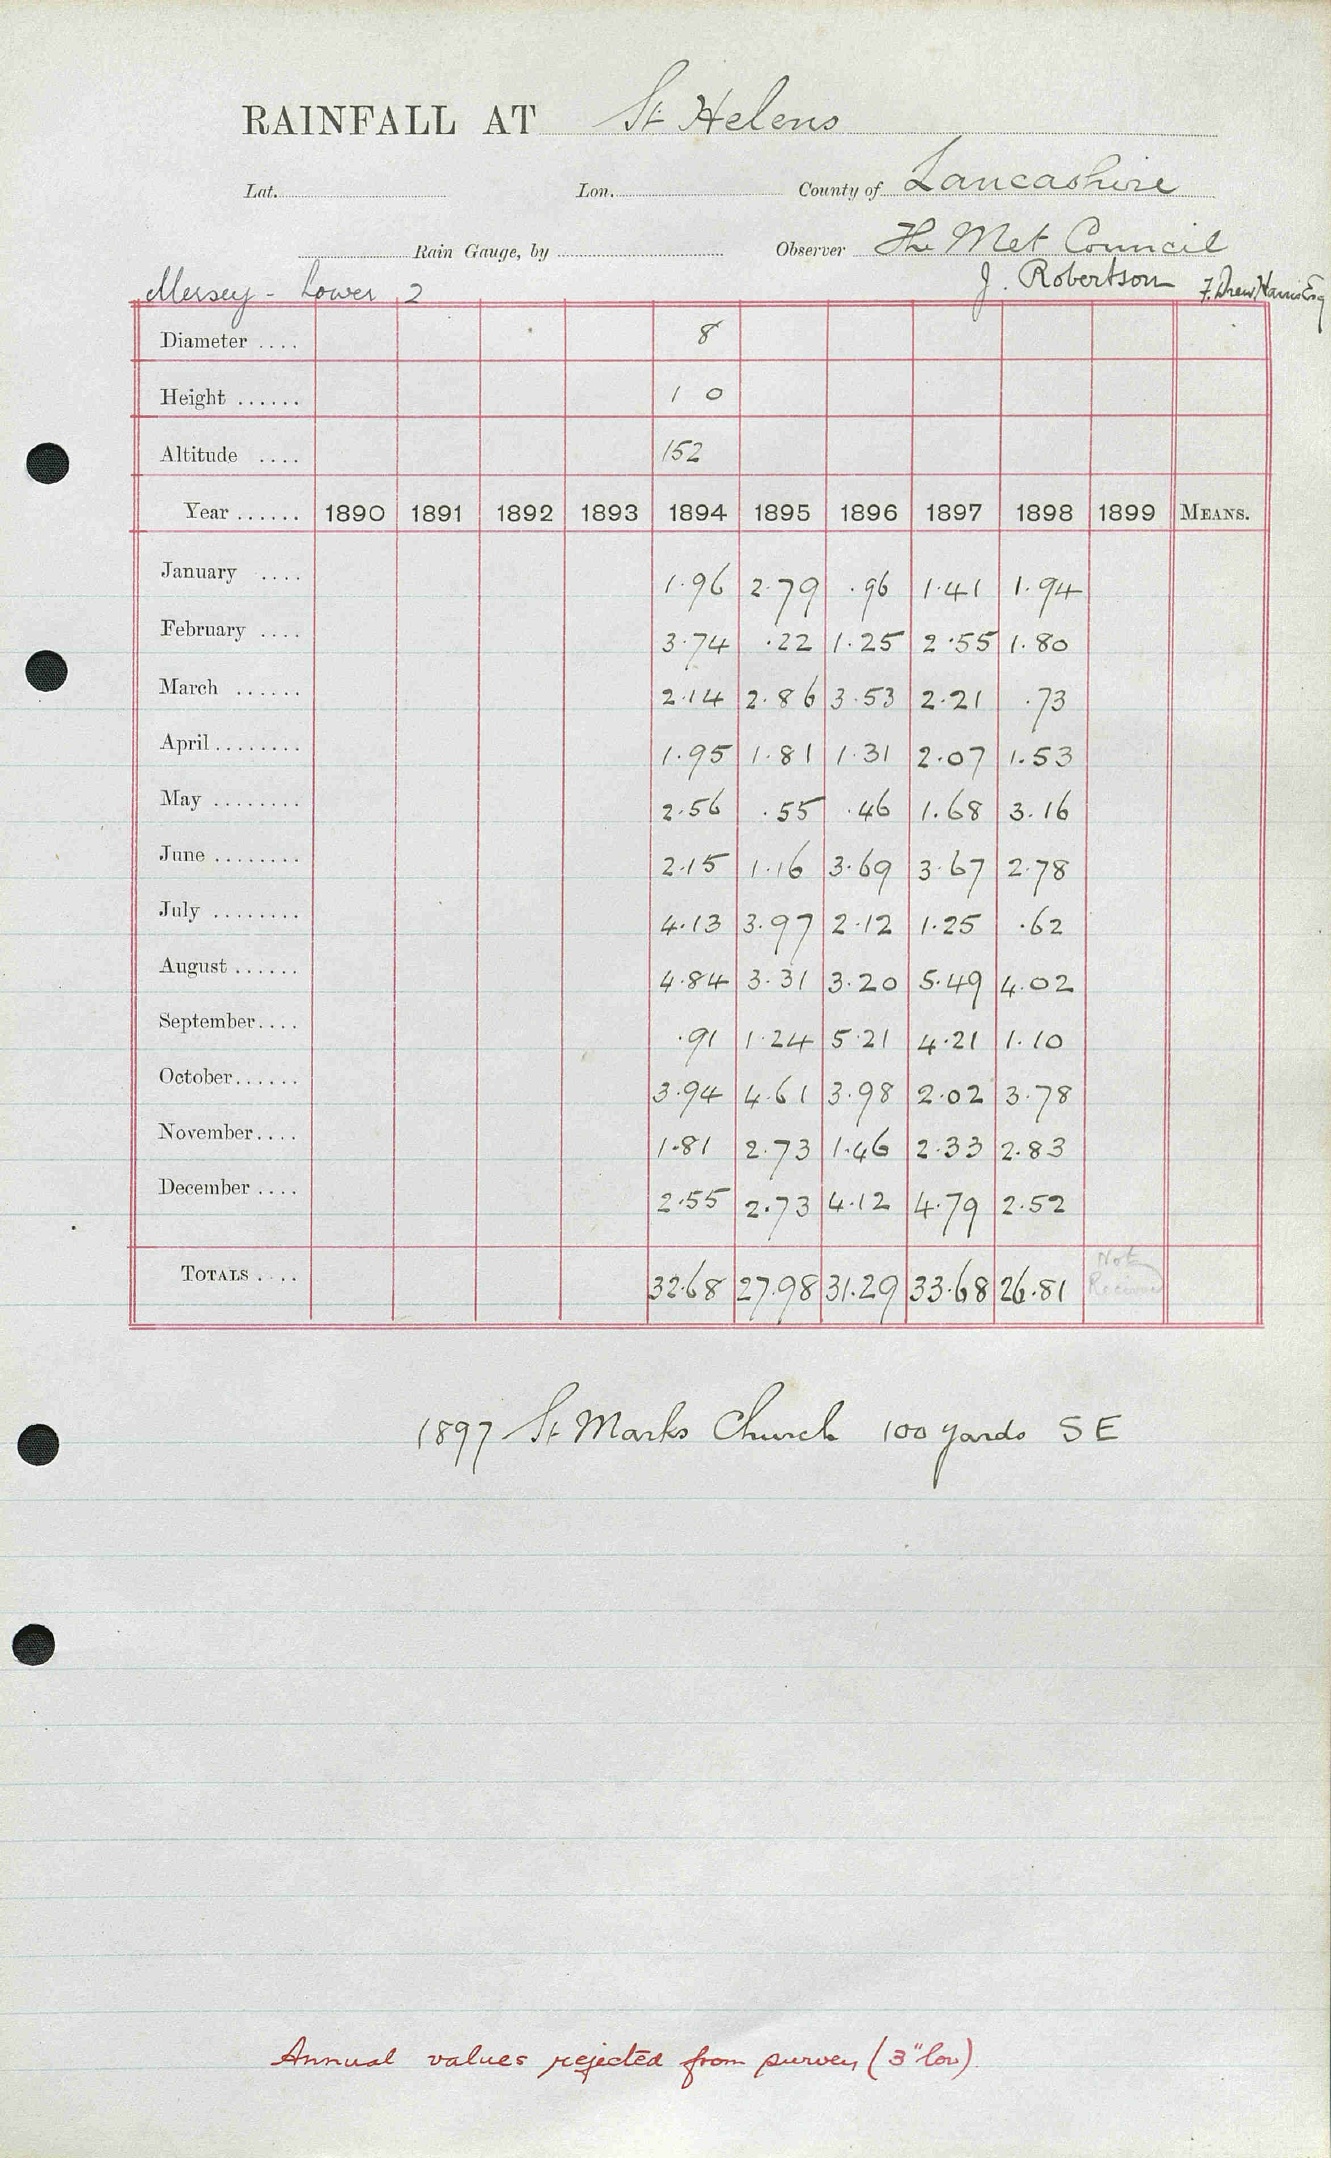 RAINFALL AT St Helens
Lat. Lon. County of Lancashire
Rain Gauge, by Observer The Met Council
Mersey - Lower 2 J. Robertson F. Drew Harris Esq
Diameter .... 8
Height ...... 1 0
Altitude .... 152
Year ...... 1890 1891 1892 1893 1894 1895 1896 1897 1898 1899 MEANS.
January .... 1.96 2.79 .96 1.41 1.94
February .... 3.74 .22 1.25 2.55 1.80
March ...... 2.14 2.86 3.53 2.21 .73
April ........ 1.95 1.81 1.31 2.07 1.53
May ........ 2.56 .55 .46 1.68 3.16
June ........ 2.15 1.16 3.69 3.67 2.78
July ........ 4.13 3.97 2.12 1.25 .62
August ...... 4.84 3.31 3.20 5.49 4.02
September.... .91 1.24 5.21 4.21 1.10
October...... 3.94 4.61 3.98 2.02 3.78
November.... 1.81 2.73 1.46 2.33 2.83
December .... 2.55 2.73 4.12 4.79 2.52
TOTALS .... 32.68 27.98 31.29 33.68 26.81 Not Received
1897 St Marks Church 100 yards SE
Annual values rejected from survey (3" low).